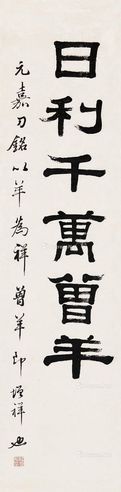 日利千萬曾羊
元嘉刀銘以羊為祥曾羊即增祥也